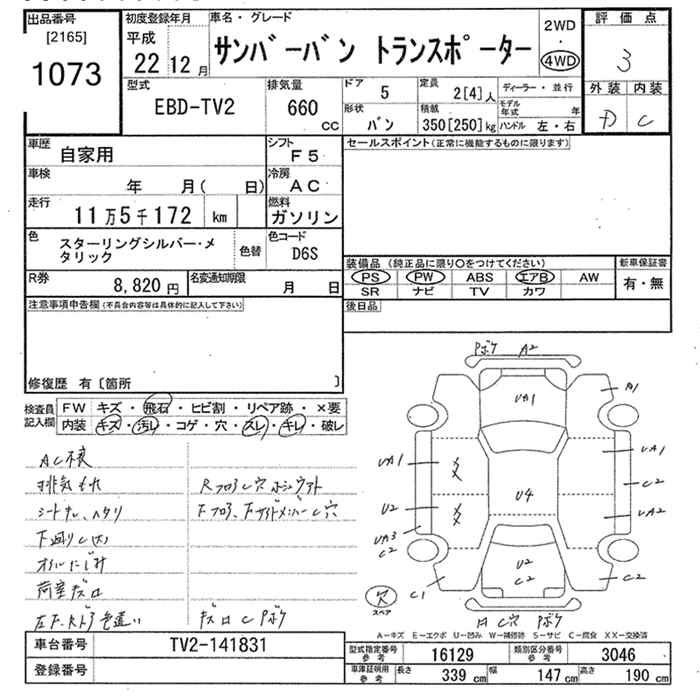 出品番号
[2165]
1073
初度登録年月
平成
22 12 月
車名・グレード
サンバーバン トランスポーター
2WD
・
4WD
評価点
3
外装 内装
D C
型式
EBD-TV2
排気量
660
CC
ドア
5
定員
2[4]人
ディーラー・並行
形状
バン
積載
350[250]kg
モデル年式 年
ハンドル 左・右
車歴
自家用
シフト
F5
車検
年 月( 日)
冷房
AC
走行
11万5千172 km
燃料
ガソリン
色
スターリングシルバー・メ
タリック
色替
色コード
D6S
R券
8,820 円
名変通知期限
月 日
セールスポイント(正常に機能するものに限ります)
装備品(純正品に限り○をつけてください)
PS PW ABS エアB AW
SR ナビ TV カワ
新車保証書
有・無
後日品
注意事項申告欄(不具合内容等は具体的に記入して下さい)
修復歴 有〔箇所 〕
検査員
記入欄
FW キズ・飛石・ヒビ割・リペア跡・×要
内装 キズ・汚レ・コゲ・穴・スレ・キレ・破レ
AC不良
排気もれ
シートナレ、ヘタリ
下廻りC(大)
オイルにじみ
荷室ボロ
Pボケ A2
A1
UA1
UA1
UA1
U2
U4
C2
UA2
UA3
C2
U2
C2
C1
C2
穴
スペア
C穴 Pボケ
A－キズ E－エクボ U－凹み W－補修跡 S－サビ C－腐食 XX－交換済
車台番号
TV2-141831
登録番号
型式指定番号
参考
16129
類別区分番号
参考
3046
車庫証明用
参考
長さ
339 cm
幅
147 cm
高さ
190 cm